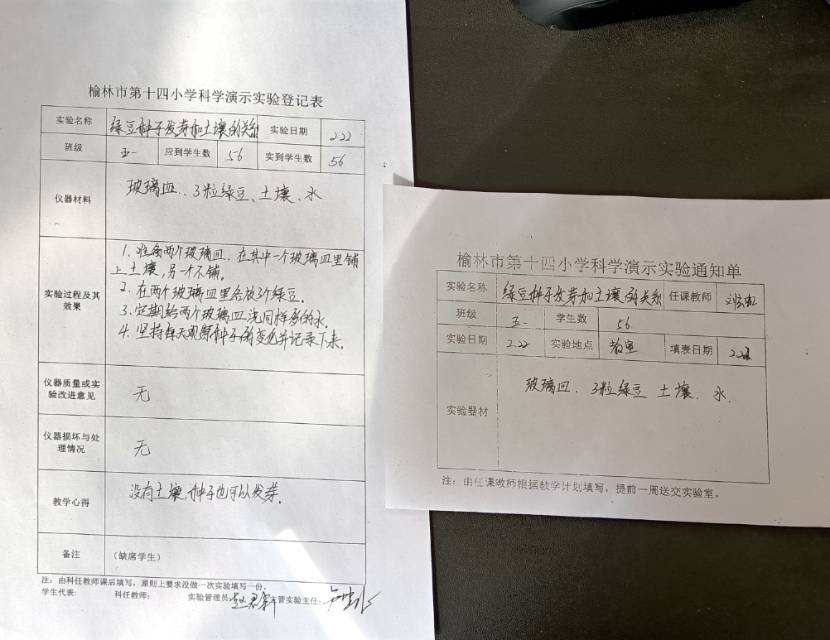 榆林市第十四小学科学演示实验登记表
实验名称 绿豆种子发芽和土壤的关系 实验日期 2.22
班级 五一 应到学生数 56 实到学生数 56
仪器材料 玻璃皿、3粒绿豆、土壤、水
实验过程及其效果
1. 准备两个玻璃皿、在其中一个玻璃皿里铺
上土壤,另一个不铺。
2. 在两个玻璃皿里各放3个绿豆。
3. 定期给两个玻璃皿浇同样多的水。
4. 坚持每天观察种子的变化并记录下来。
仪器质量或实验改进意见 无
仪器损坏与处理情况 无
教学心得 没有土壤种子也可以发芽。
备注 (缺席学生)
注:由科任教师课后填写,原则上要求没做一次实验填写一份。
学生代表: 科任教师: 实验管理员: 主管实验主任:
榆林市第十四小学科学演示实验通知单
实验名称 绿豆种子发芽和土壤的关系 任课教师
班级 五一 学生数 56
实验日期 2.22 实验地点 教室 填表日期 2.22
实验器材 玻璃皿、3粒绿豆 土壤、水
注:由任课教师根据教学计划填写,提前一周送交实验室。